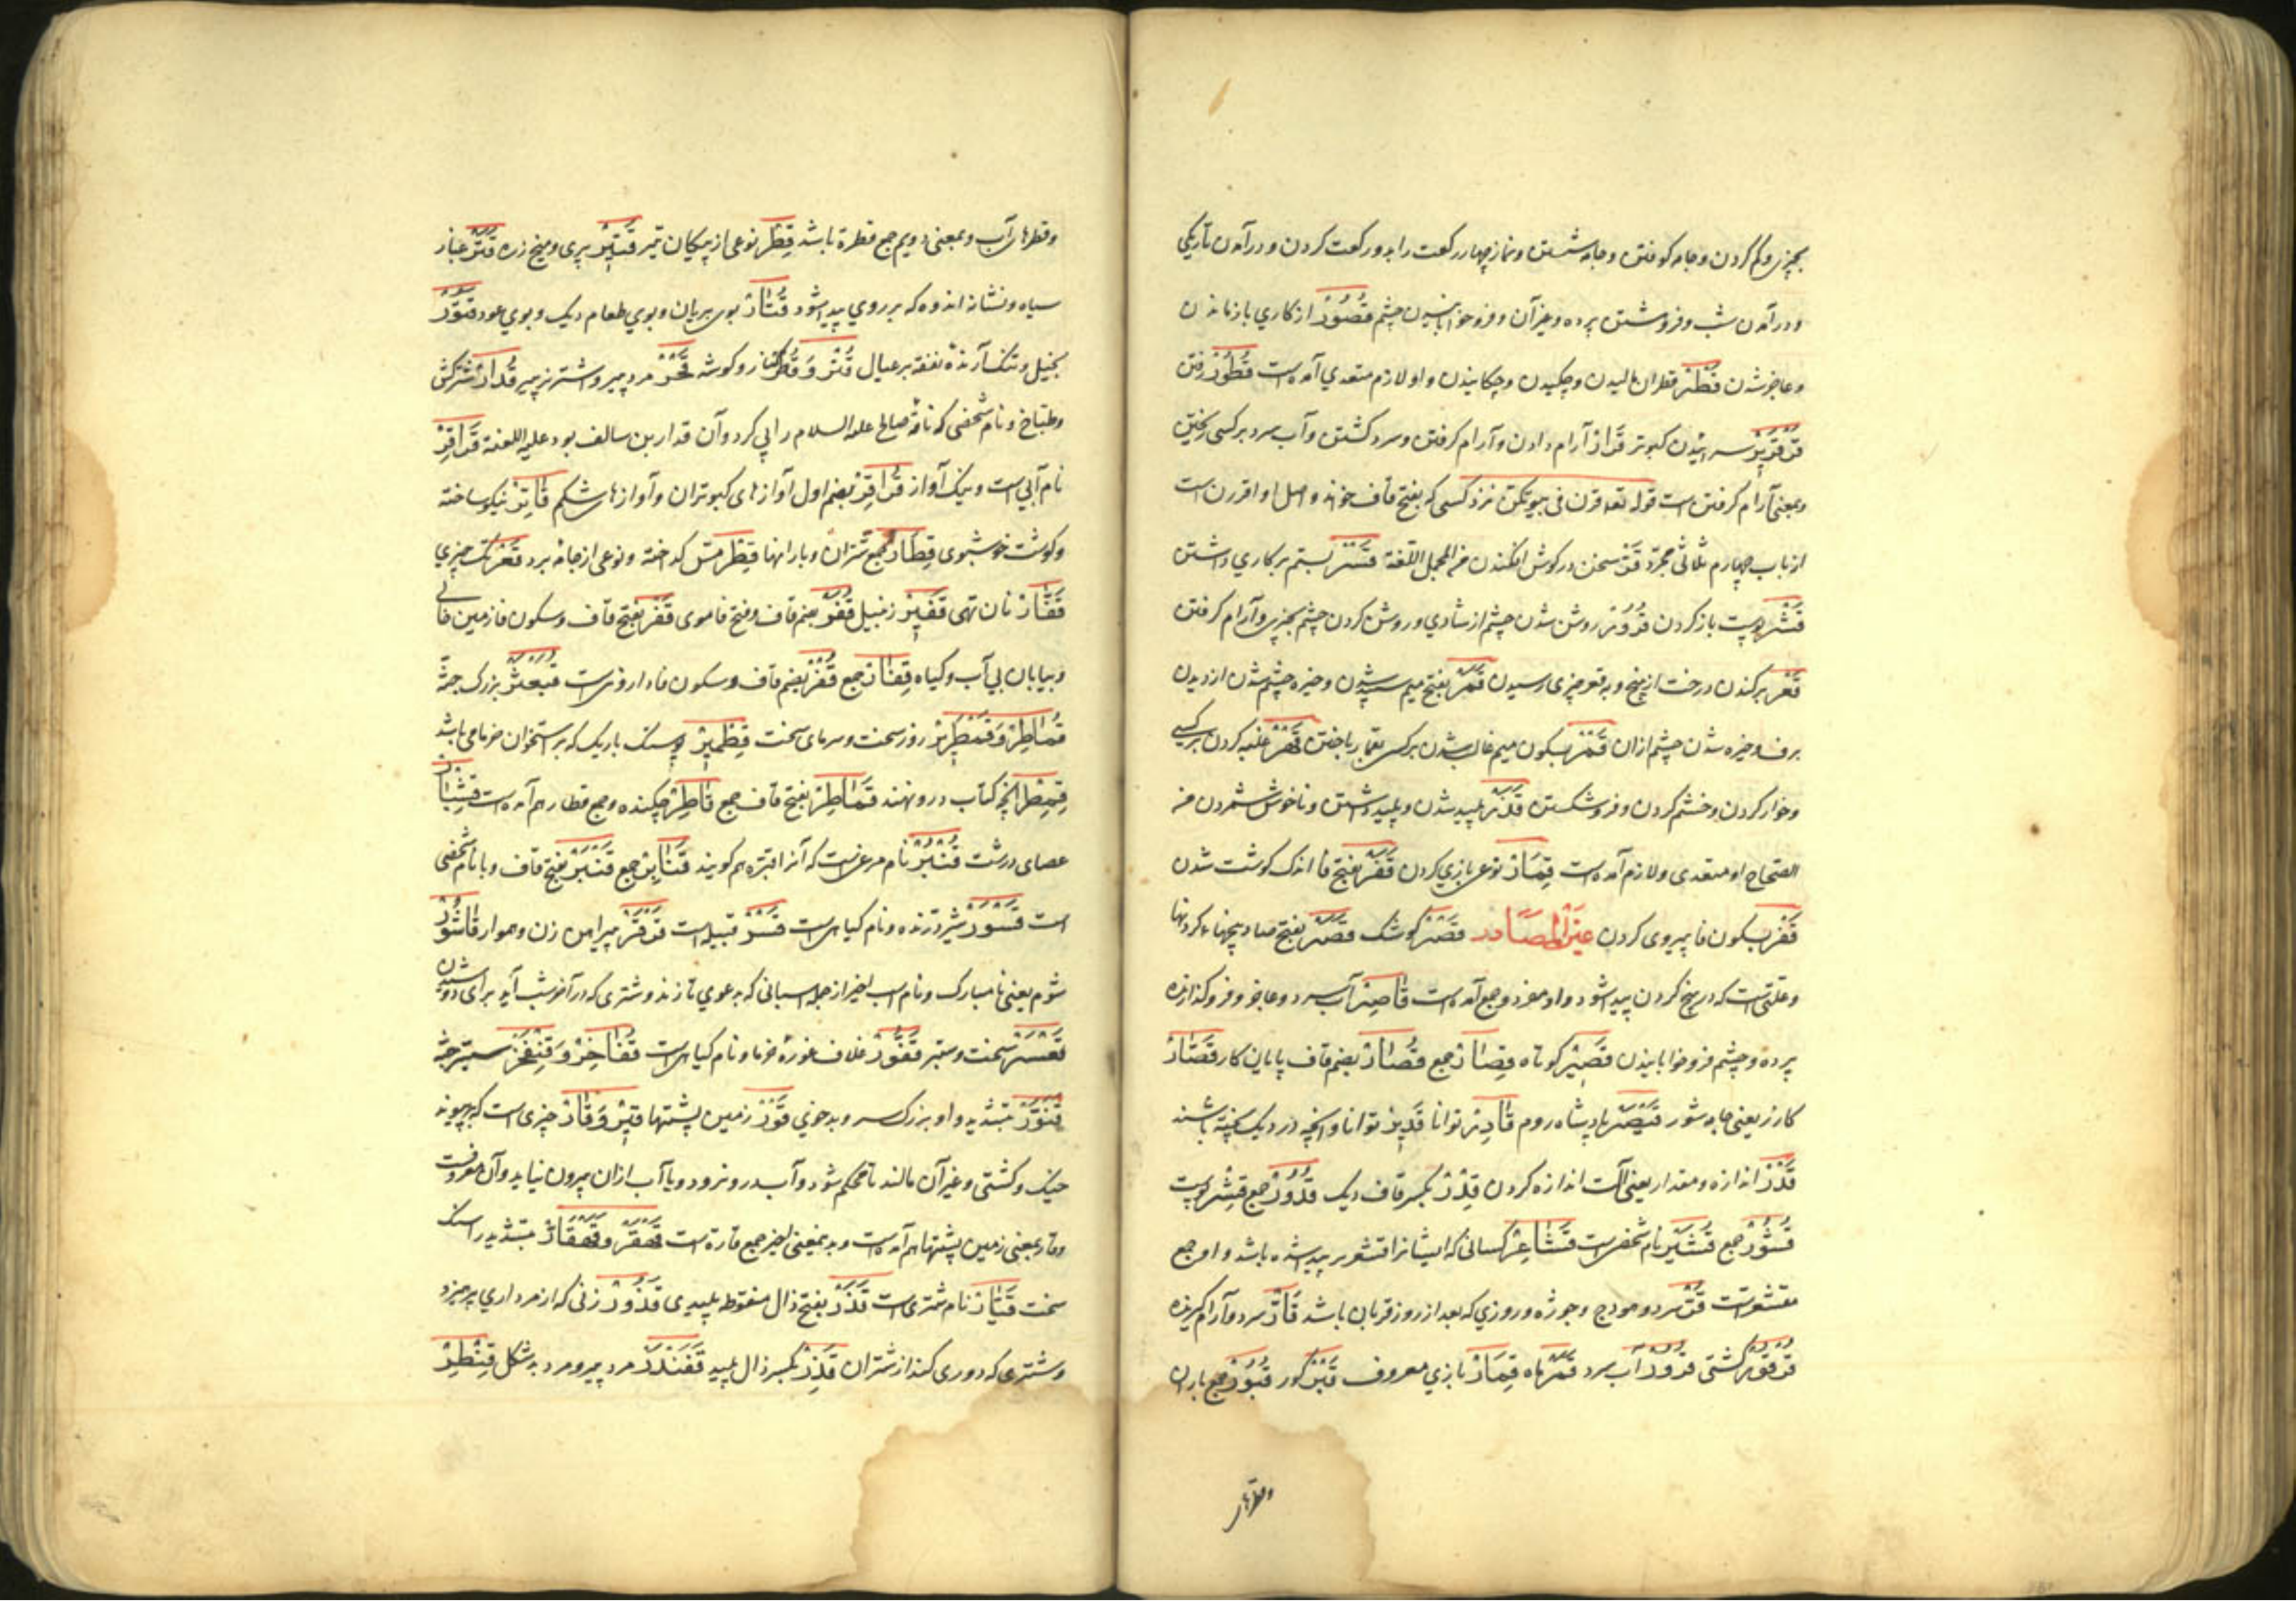 بچیزی و کم کردن و جامه کوفتن و جامه شستن و نماز چهار رکعت را بدو رکعت کردن و درآمدن تاریکی
و درآمدن شب و فروهشتن پرده و غیر آن و فروخوابانیدن چشم قُصُورْ از کاری بازماندن
و عاجز شدن قَطْرْ قطران مالیدن و چکیدن و چکانیدن و او لازم متعدی آمده است قُطُورْ رفتن
قَرْقَرِیرْ بانیدن کبوتر قَرَارْ آرام دادن و آرام گرفتن و سرد گشتن و آب سرد بر کسی ریختن
و بمعنی آرام گرفتن است قوله تعه قرن فی بیوتکن نزد کسی که بفتح قاف خواند و اصل او اقررن است
از باب چهارم ثلاثی مجرد قَرّْ سخن در گوش افکندن من المجمل اللغة قَسْرْ بستم بر کاری داشتن
قَشْرْ پوست باز کردن قُرُورْ روشن شدن چشم از شادی و روشن کردن چشم بچیزی و آرام گرفتن
قَعْرْ برکندن درخت از بیخ و بقعر چیزی رسیدن قَمَرْ بفتح میم سپید شدن و خیره چشم شدن از دیدن
برف و خیره شدن چشم ازان قَمْرْ بسکون میم غالب شدن بر کسی بقمار باختن قَهْرْ غلبه کردن بر کسی
و خوار کردن و خشم کردن و فروشکستن قَذَرْ پلید شدن و پلید داشتن و ناخوش شمردن من
الصحاح او متعدی و لازم آمده است قِمَارْ نوعی بازی کردن قَفَرْ بفتح فا اندک گوشت شدن
قَفْرْ بسکون فا پیروی کردن غیر المصادر قَصْرْ کوشک قَصَرْ بفتح صاد بیخهاء گردنها
و علتی است که در بیخ گردن پیدا شود و او مفرد و جمع آمده است قَاصِرْ آب سرد و عاجز و فروگذارنده
پرده و چشم فروخوابانیدن قَصِیرْ کوتاه قِصَارْ جمع قُصَارْ بضم قاف پایان کار قَصَّارْ
کازر یعنی جامه شور قَیْصَرْ پادشاه روم قَادِرْ توانا قَدِیرْ توانا و آنچه در دیک پخته باشند
قَدْرْ اندازه و مقدار یعنی آلت اندازه کردن قِدْرْ بکسر قاف دیک قُدُورْ جمع قِشْرْ پوست
قُشُورْ جمع قُشَیْرْ نام شخصی است قَشَاعِرْ کسانی که ایشانرا اقشعریر پیدا شده باشد و او جمع
مقشعر است قَرّْ سرد و هودج و جوژه و روزی که بعد از روز قربان باشد قَارّْ سرد و آرام گیرنده
قُرْقُورْ کشتی قَرُورْ آب سرد قَمَرْ ماه قِمَارْ بازی معروف قَبْرْ گور قُبُورْ جمع باران
و قطرهای
و قطرهای آب و بمعنی دویم جمع قطرة باشد قِطْرْ نوعی از پیکان تیر قَتِیرْ پیری و میخ زره قَتَرْ غبار
سیاه و نشانه اندوه که بر روی پیدا شود قُتَارْ بوی بریان و بوی طعام دیک و بوی عود قَتُورْ
بخیل و تنک آرنده نفقه بر عیال قُتْرْ وَ قُطْرْ کنار و گوشه قَحْرْ مرد پیر و اشتر نر پیر قُدَارْ شترکش
و طباخ و نام شخصی که ناقه صالح علیه السلام را پی کرد و آن قدار بن سالف بود علیه اللعنة قَرَاقِرْ
نام آبی است و نیک آواز قُرَاقِرْ بضم اول آوازهای کبوتران و آوازهای شکم قَاتِرْ نیکو ساخته
و گوشت خوشبوی قِطَارْ جمع شتران و بارانها قِطْرْ مس گداخته و نوعی از جامه برد قَعْرْ تک چیزی
قَفَارْ نان تهی قَفِیرْ زنبیل قُفَرْ بضم قاف و فتح فا موی قَفْرْ بفتح قاف و سکون فا زمین خالی
و بیابان بی آب و گیاه قِفَارْ جمع قُفْرْ بضم قاف و سکون فا داروئی است قَبَعْثَرْ بزرک جثه
قُمَاطِرْ وَ قَمْطَرِیرْ روز سخت و سرمای سخت قِطْمِیرْ پوستک باریک که بر استخوان خرما می باشد
قِمَطْرْ آنچه کتاب درو نهند قَمَاطِرْ بفتح قاف جمع قَاطِرْ چکنده و جمع قطار هم آمده است قِشْبَارْ
عصای درشت قُنْبُرْ نام مرغی است که آنرا قبره هم گویند قَنَابِرْ جمع قَنْبَرْ بفتح قاف و با نام شخصی
است قَسْوَرْ شیر درنده و نام گیاهی است قَسْرْ قبیله است قَرْقَرْ پیراهن زن و هموار قَاشُورْ
شوم یعنی نامبارک و نام اسب اخیر از جمله اسبانی که بدعوی تازند و شتری که در آخر شب آید برای دوشیدن
قَعْسَرْ سخت و ستبر قَفُّورْ غلاف غوره خرما و نام گیاهی است قُفَاخِرْ وَ قِنْفَخْرْ ستبر جثه
قَنَوَّرْ بتشدید واو بزرک سر و بدخوی قَوْرْ زمین پشتها قِیرْ وَ قَارْ چیزی است که بر چوبینه
خیک و کشتی و غیر آن مالند تا محکم شود و آب درو نرود و یا آب ازان بیرون نیاید و آن معروفست
و قار بمعنی زمین پشتها هم آمده است و بدین معنی اخیر جمع قاره است قَهْقَرْ وَ قَهْقَارّْ بتشدید را سنک
سخت قَیَّارْ نام شتری است قَذَرْ بفتح ذال منقوطه پلیدی قَذُورْ زنی که از مرداری پرهیزد
و شتری که دوری کند از شتران قَذِرْ بکسر ذال پلید قَفَنْدَرْ مرد پیر و مرد بدشکل قِنْطِرْ